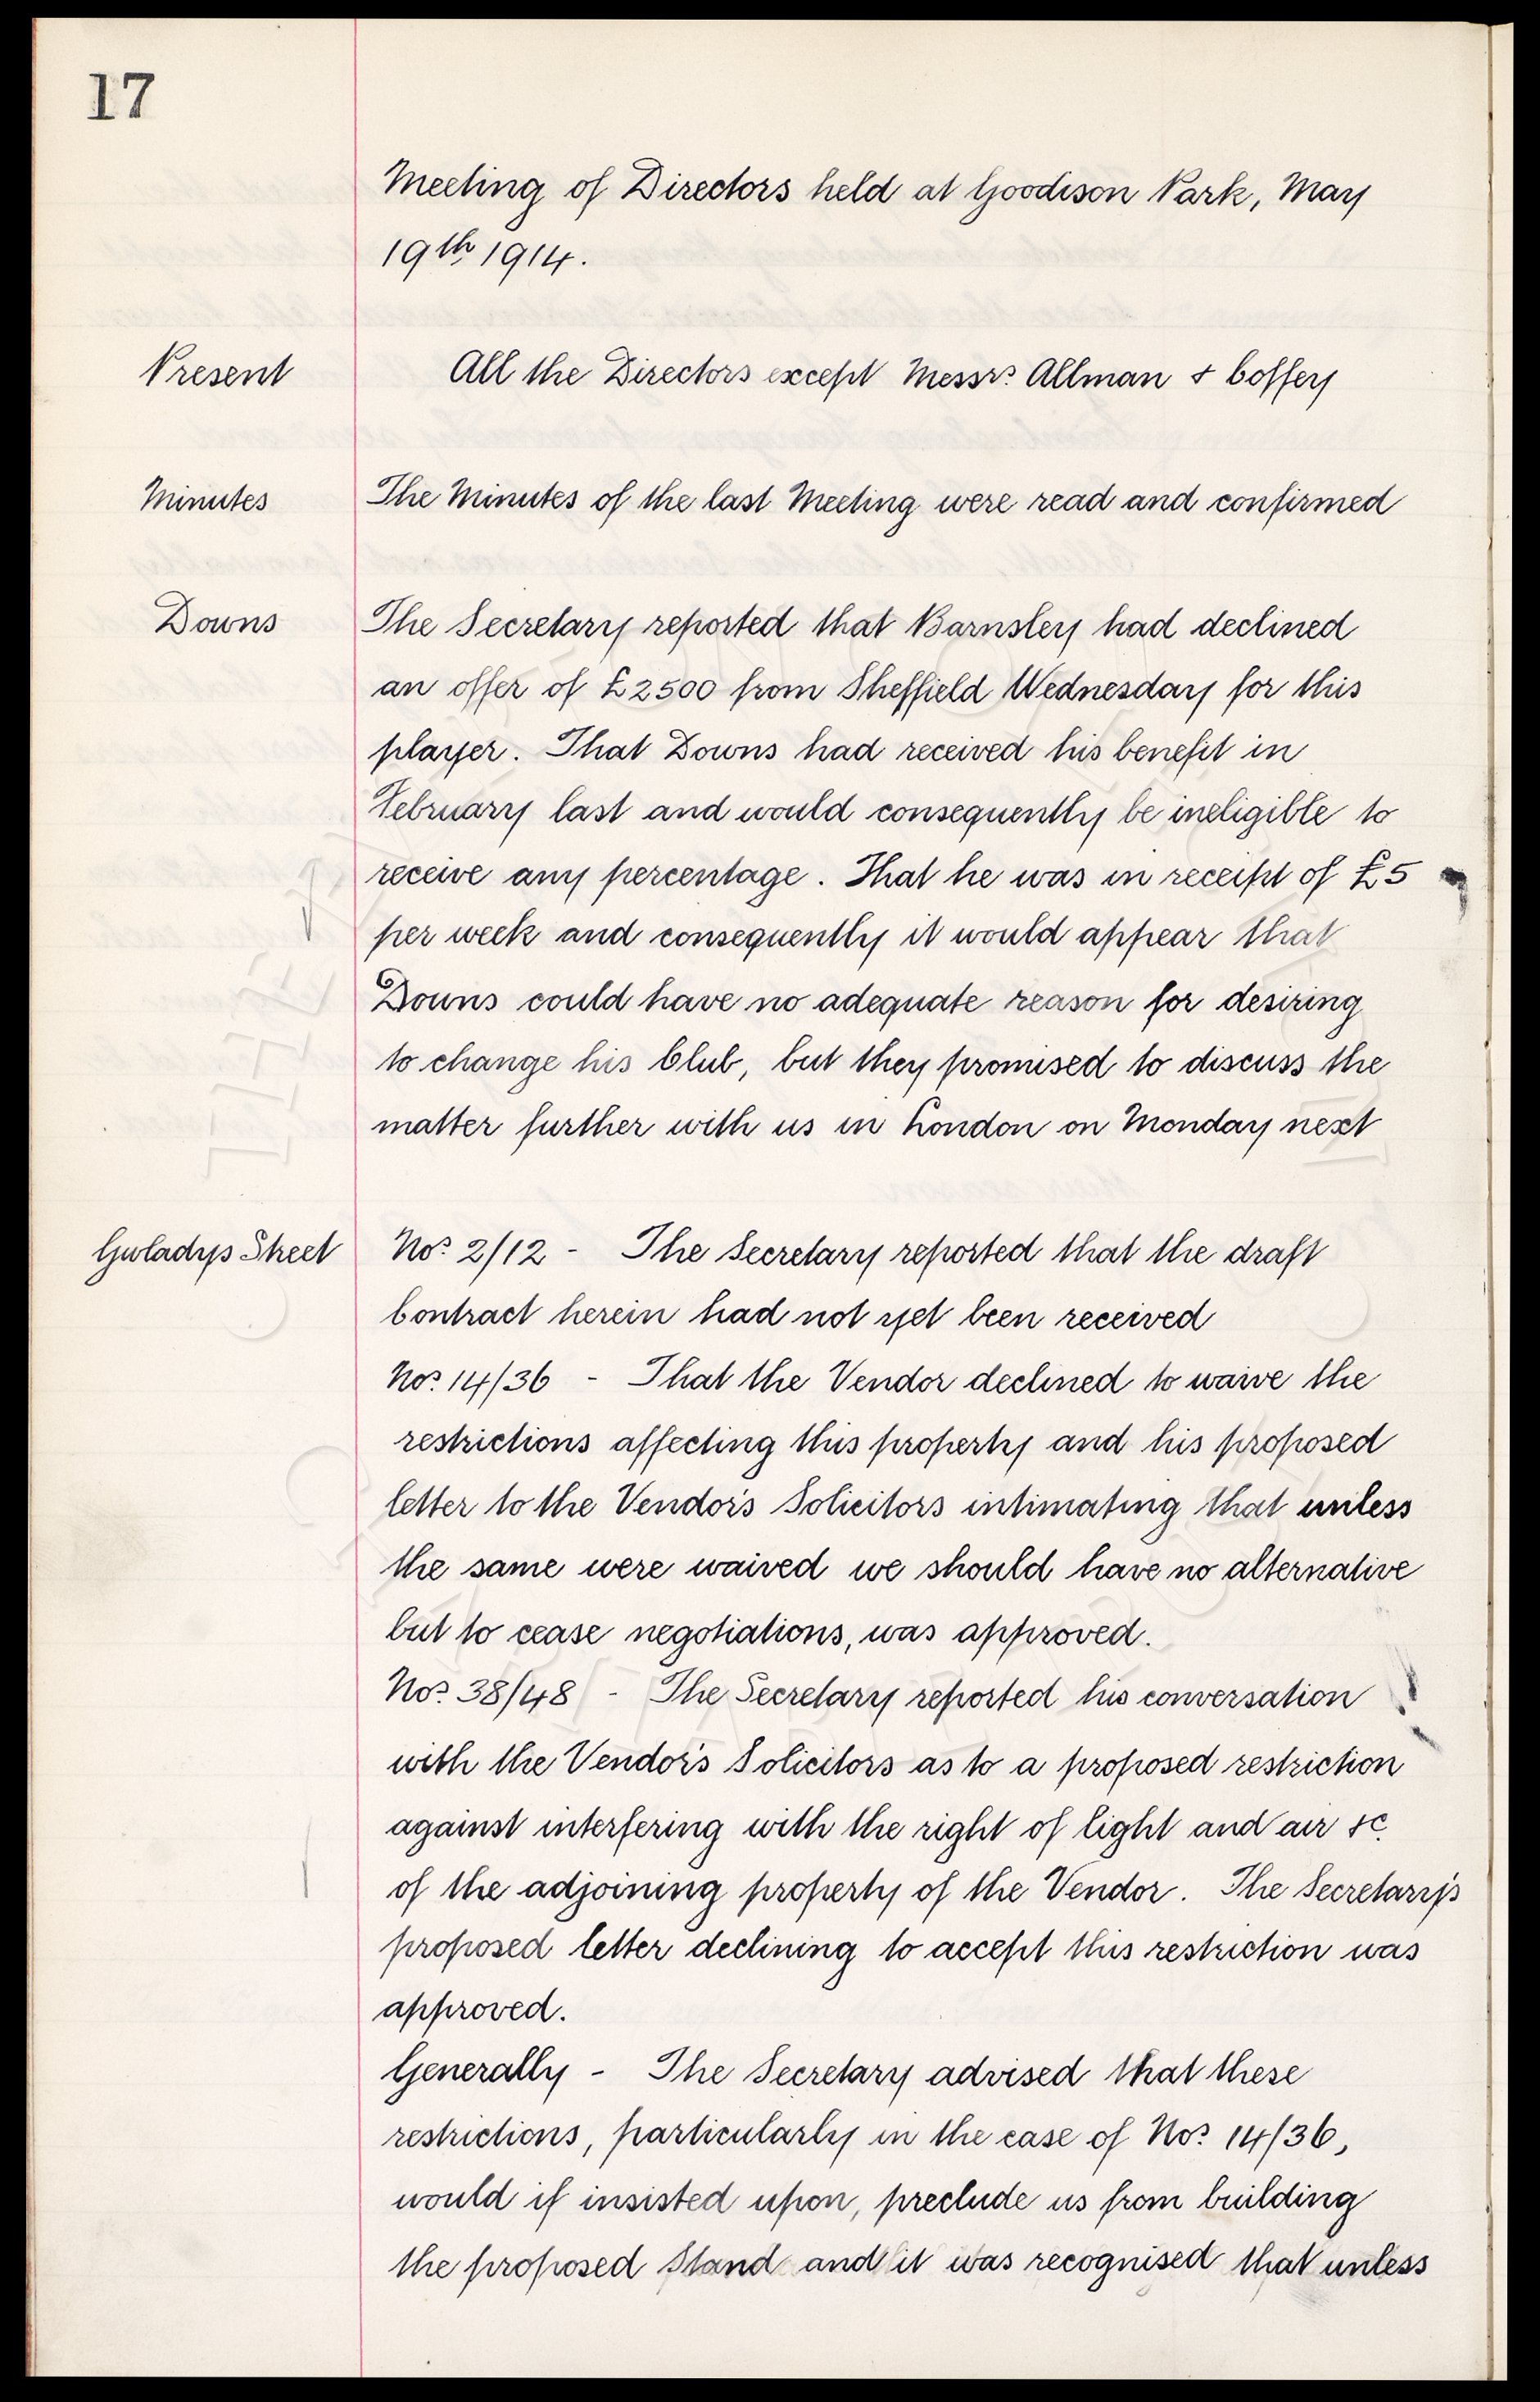 17
Meeting of Directors held at Goodison Park, May
19th 1914.
Present
All the Directors except Messrs Allman & Coffey
Minutes
The Minutes of the last Meeting were read and confirmed
Downs
The Secretary reported that Barnsley had declined
an offer of £2500 from Sheffield Wednesday for this
player. That Downs had received his benefit in
February last and would consequently be ineligible to
receive any percentage. That he was in receipt of £5
per week and consequently it would appear that
Downs could have no adequate reason for desiring
to change his Club, but they promised to discuss the
matter further with us in London on Monday next
Gwladys Street
Nos 2/12 - The Secretary reported that the draft
Contract herein had not yet been received
Nos 14/36 - That the Vendor declined to waive the
restrictions affecting this property and his proposed
letter to the Vendor's Solicitors intimating that unless
the same were waived we should have no alternative
but to cease negotiations, was approved.
Nos 38/48 - The Secretary reported his conversation
with the Vendor's Solicitors as to a proposed restriction
against interfering with the right of light and air &c
of the adjoining property of the Vendor. The Secretary's
proposed letter declining to accept this restriction was
approved.
Generally - The Secretary advised that these
restrictions, particularly in the case of Nos 14/36,
would if insisted upon, preclude us from building
the proposed Stand and it was recognised that unless